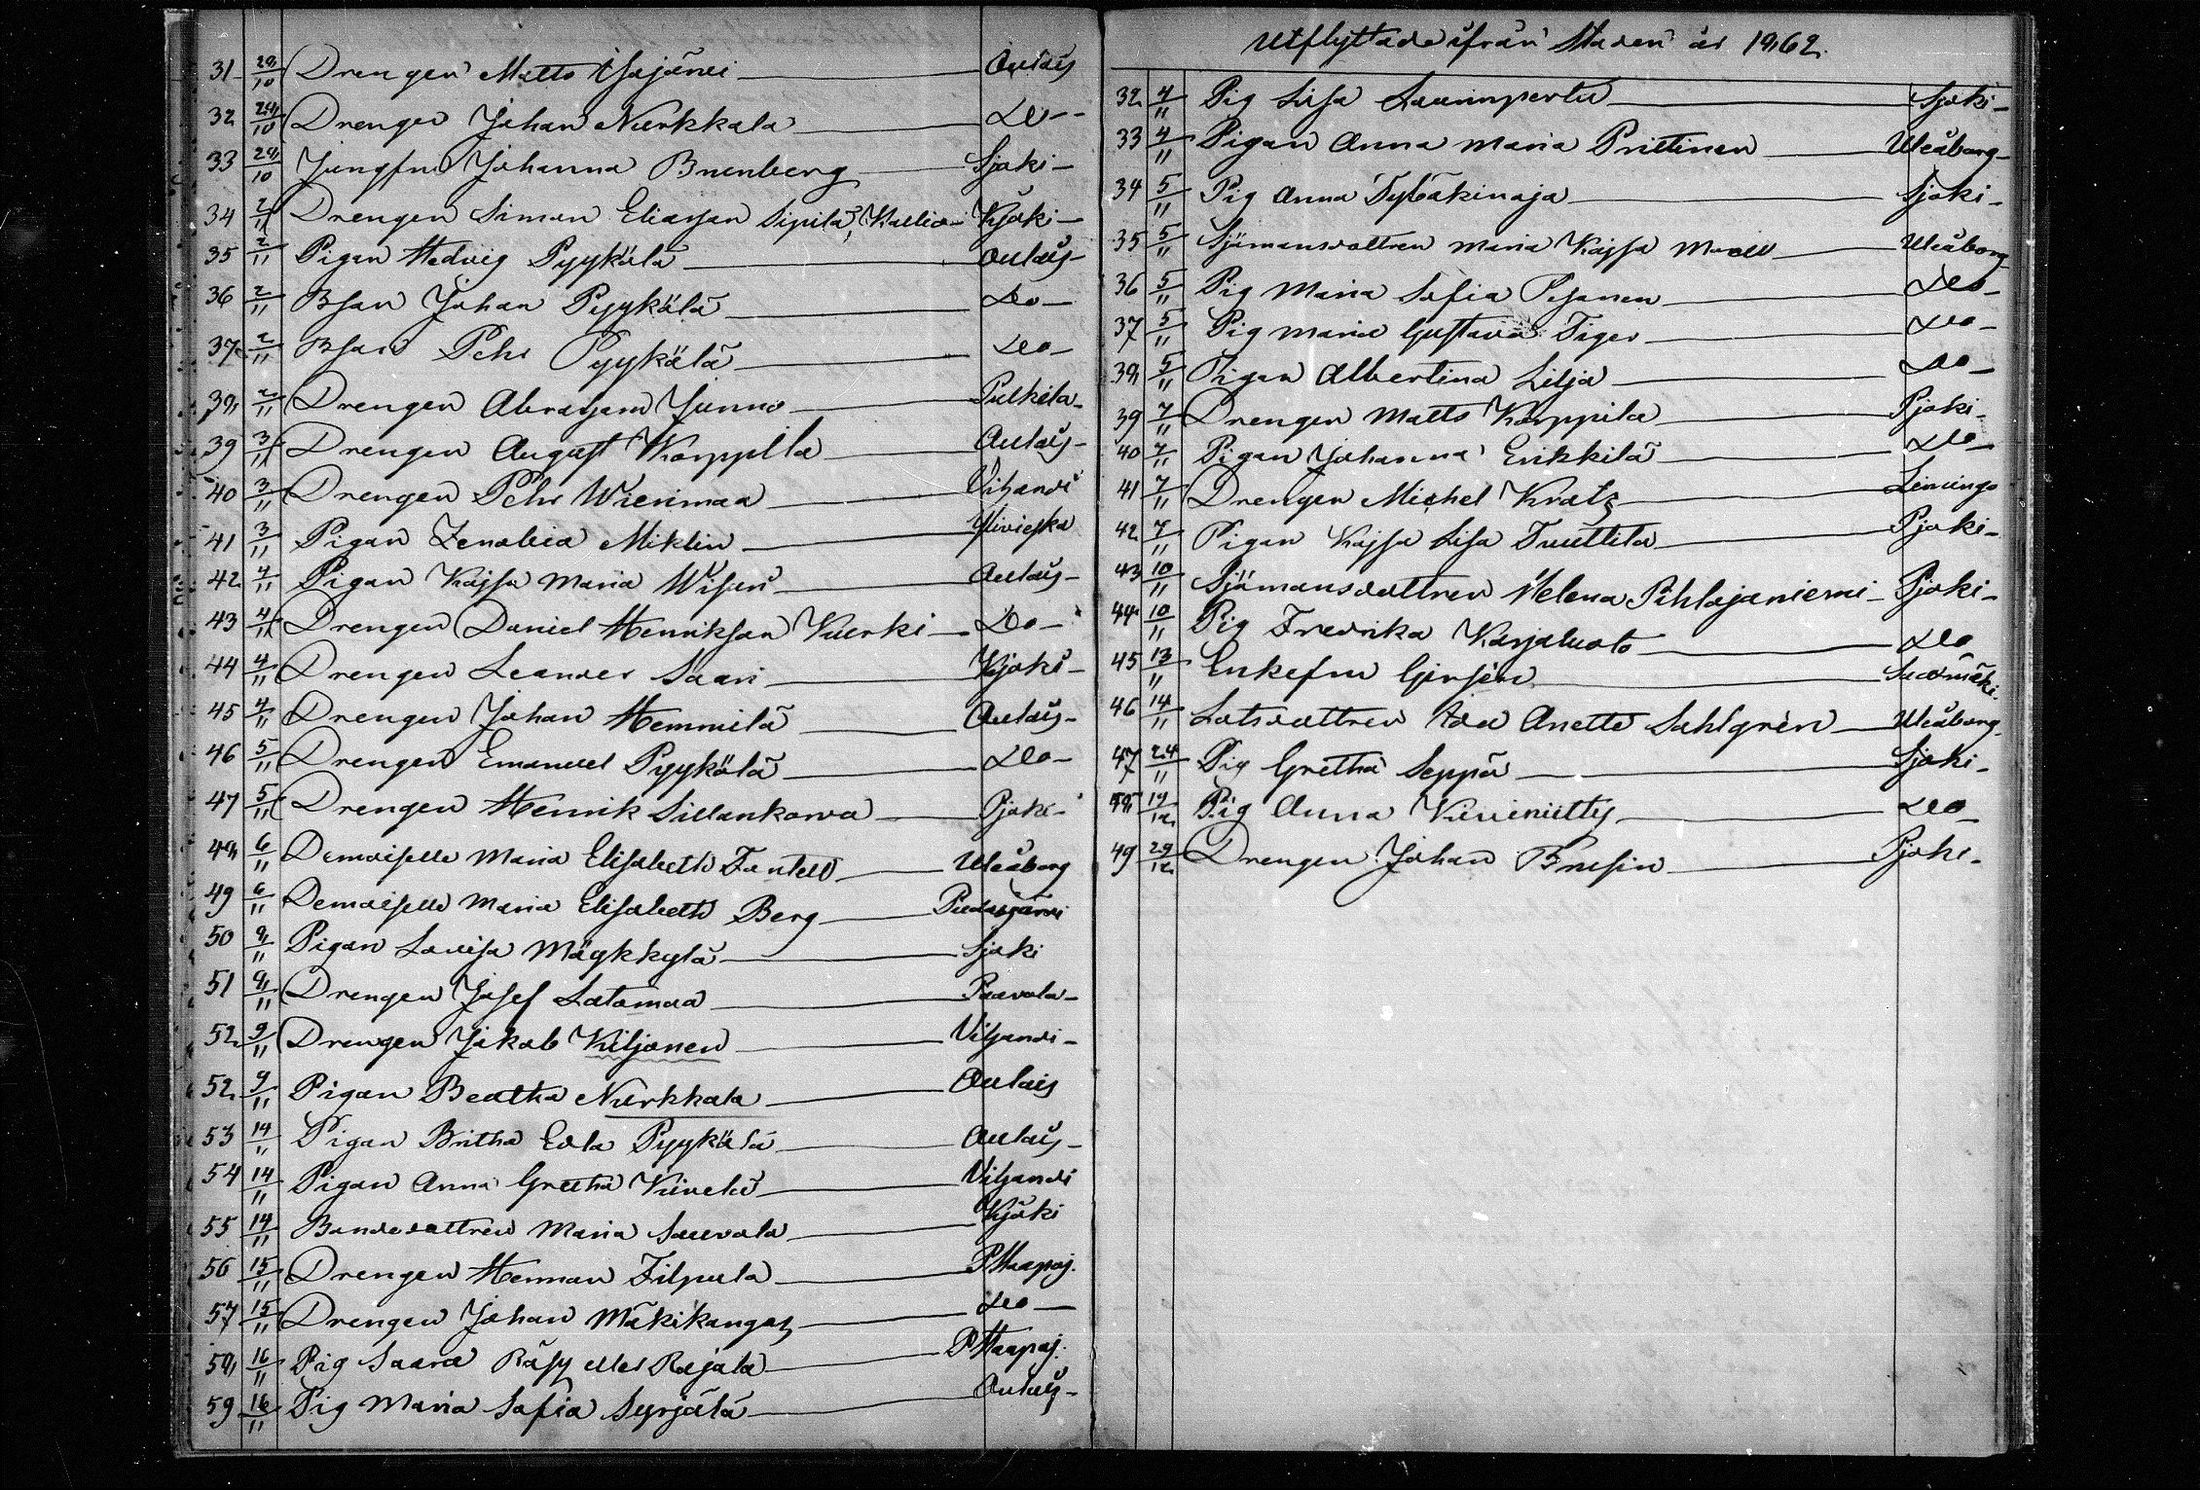 31 28/10 Drengen Matts Isojärvi Oulais
32 28/10 Drengen Johan Nurkkala Do
33 28/10 Jungfru Johanna Brunberg Sjoki
34 2/11 Drengen Simon Eliasson Sipilä, Kallio Kjoki
35 2/11 Pigan Hedvig Pyykölä Oulais
36 2/11 Bson Johan Pyykölä Do
37 2/11 Bson Pehr Pyykölä Do
38 2/11 Drengen Abraham Junno Pulkila
39 3/11 Drengen August Korppila Oulais
40 3/11 Drengen Pehr Wienmaa Vihandi
41 3/11 Pigan Zenobia Miklin Ylivieska
42 4/11 Pigan Kajsa Maria Wisuri Oulais
43 4/11 Drengen Daniel Henriksson Kurki Do
44 4/11 Drengen Leander Saari Kjoki
45 4/11 Drengen Johan Hemmilä Oulais
46 5/11 Drengen Emanuel Pyykölä Do
47 5/11 Drengen Henrik Sillankorva Pjoki
48 6/11 Demoiselle Maria Elisabeth Fontell Uleåborg
49 6/11 Demoiselle Maria Elisabeth Berg Pudasjärvi
50 8/11 Pigan Lovisa Mäykkylä Sjoki
51 8/11 Drengen Josef Latomaa Paavola
52 9/11 Drengen Jakob Kiljonen Viljandi
52 9/11 Pigan Beatha Nurkkala Oulais
53 14/11 Pigan Britha Edla Pyykölä Oulais
54 14/11 Pigan Anna Gretha Kivelä Viljandi
55 14/11 Bondedottren Maria Sauvola Kjoki
56 15/11 Drengen Herman Filpula PHaapaj.
57 15/11 Drengen Johan Mäkikangas Do
58 16/11 Pig Saara Räsy eller Rajala PHaapaj.
59 16/11 Pig Maria Sofia Syrjälä Oulais
Utflyttade ifrån Staden år 1862.
32 4/11 Pig Lisa Lauinpertu Sjoki
33 4/11 Pigan Anna Maria Prittinen Uleåborg
34 5/11 Pig Anna Sjoki
35 5/11 Sjömansdottren Maria Kajsa Modell Uleåborg
36 5/11 Pig Maria Sofia Pesonen Do
37 5/11 Pig Maria Gustava Tiger Do
38 5/11 Pigan Albertina Lilja Do
39 7/11 Drengen Matts Korppila Pjoki
40 7/11 Pigan Johanna Erikkilä Do
41 7/11 Drengen Michel Kratz Limingo
42 7/11 Pigan Kajsa Lisa Tuuttila Pjoki
43 10/11 Sjömansdottren Helena Pihlajaniemi Pjoki
44 10/11 Pig Fredrika Karjaluoto Do
45 13/11 Enkefru Gersén
46 14/11 Lotsdottren Ida Anette Sahlgrén Uleåborg
47 24/11 Pig Gretha Seppä Sjoki
48 19/12 Pig Anna Kivinietty Do
49 29/12 Drengen Johan Brusin Pjoki